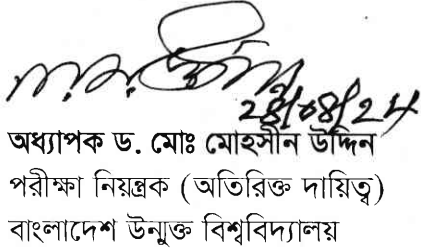 28/08/24
অধ্যাপক ড. মোঃ মোহসীন উদ্দিন
পরীক্ষা নিয়ন্ত্রক (অতিরিক্ত দায়িত্ব)
বাংলাদেশ উন্মুক্ত বিশ্ববিদ্যালয়